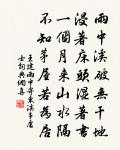 雨中溪破無干地
浸著床頭濕著書
一個月來山水隔
不知茅屋若為居
王建雨中寄東溪韋處
士詞典網喜